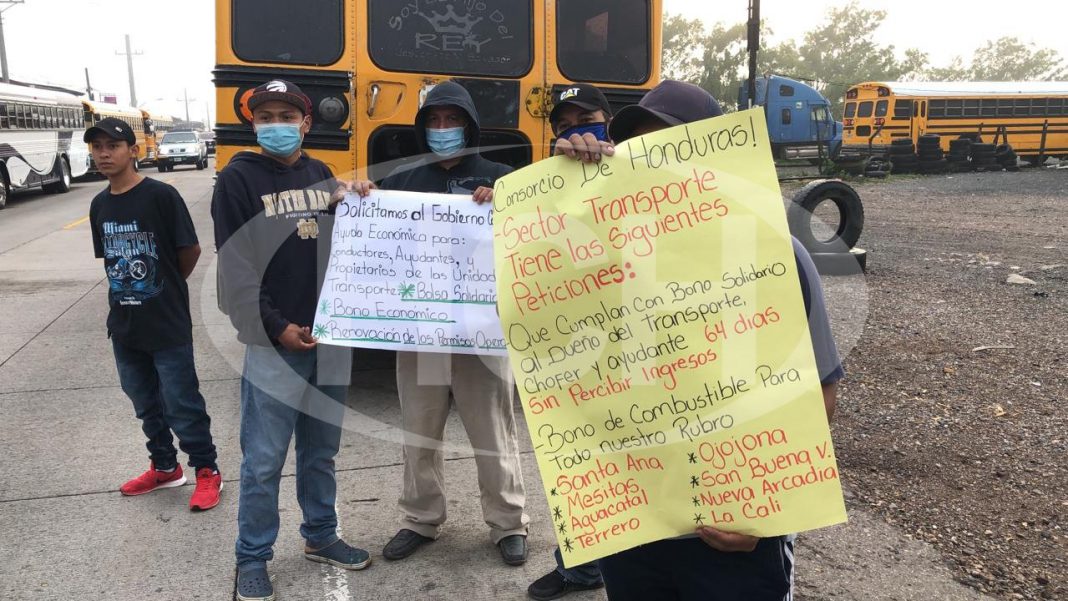 Soy El Hijo Del
REY
CAT
NOTRE DAME
Miami
MOTORCYCLE
Solicitamos al Gobierno
Ayuda Económica para:
Conductores, Ayudantes, y
Propietarios de las Unidad
Transporte * Bolsa Solidaria
* Bono Económico
* Renovación de los Permisos Opera
Consorcio De Honduras!
-Sector Transporte
Tiene las Siguientes
Peticiones:
-Que Cumplan Con Bono Solidario
al Dueño del Transporte,
Chofer y ayudante 64 días
Sin Percibir Ingresos
-Bono de Combustible Para
Todo nuestro Rubro
* Santa Ana
* Mesitas
* Aguacatal
* Terrero
* Ojojona
* San Buena v.
* Nueva Arcadia
* La Cali